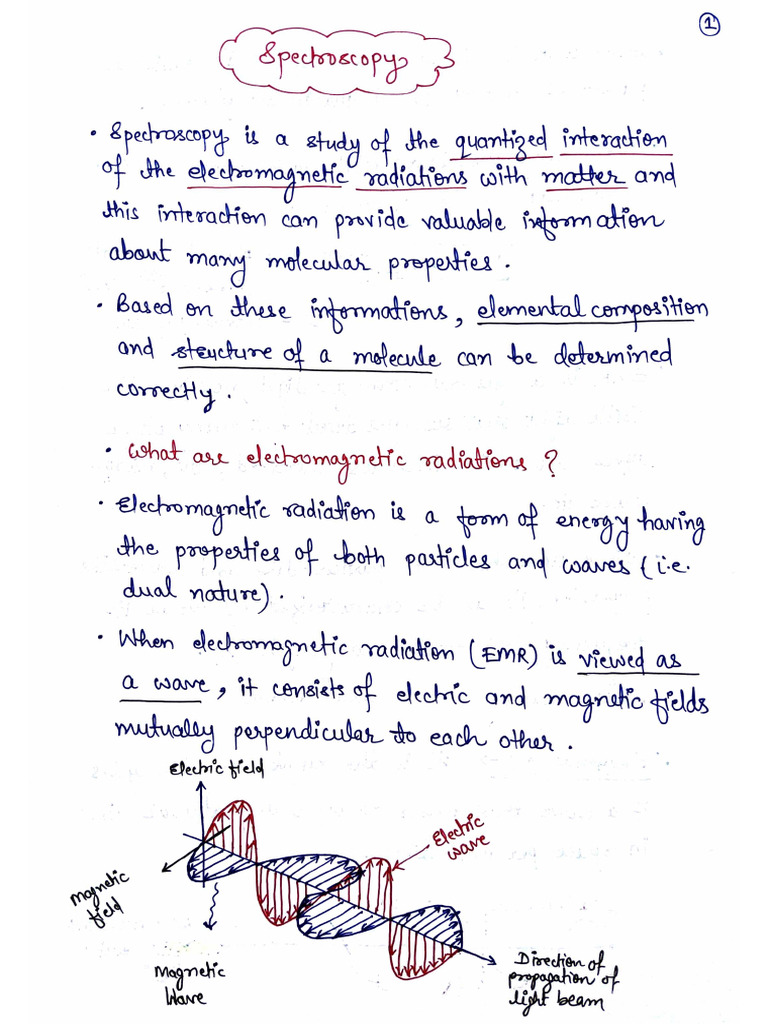 1
Spectroscopy
• Spectroscopy is a study of the quantized interaction
of the electromagnetic radiations with matter and
this interaction can provide valuable information
about many molecular properties.
• Based on these informations, elemental composition
and structure of a molecule can be determined
correctly.
• What are electromagnetic radiations?
• Electromagnetic radiation is a form of energy having
the properties of both particles and waves (i.e.
dual nature).
• When electromagnetic radiation (EMR) is viewed as
a wave, it consists of electric and magnetic fields
mutually perpendicular to each other.
Electric field
Electric
wave
Magnetic
field
Magnetic
Wave
Direction of
propagation of
light beam